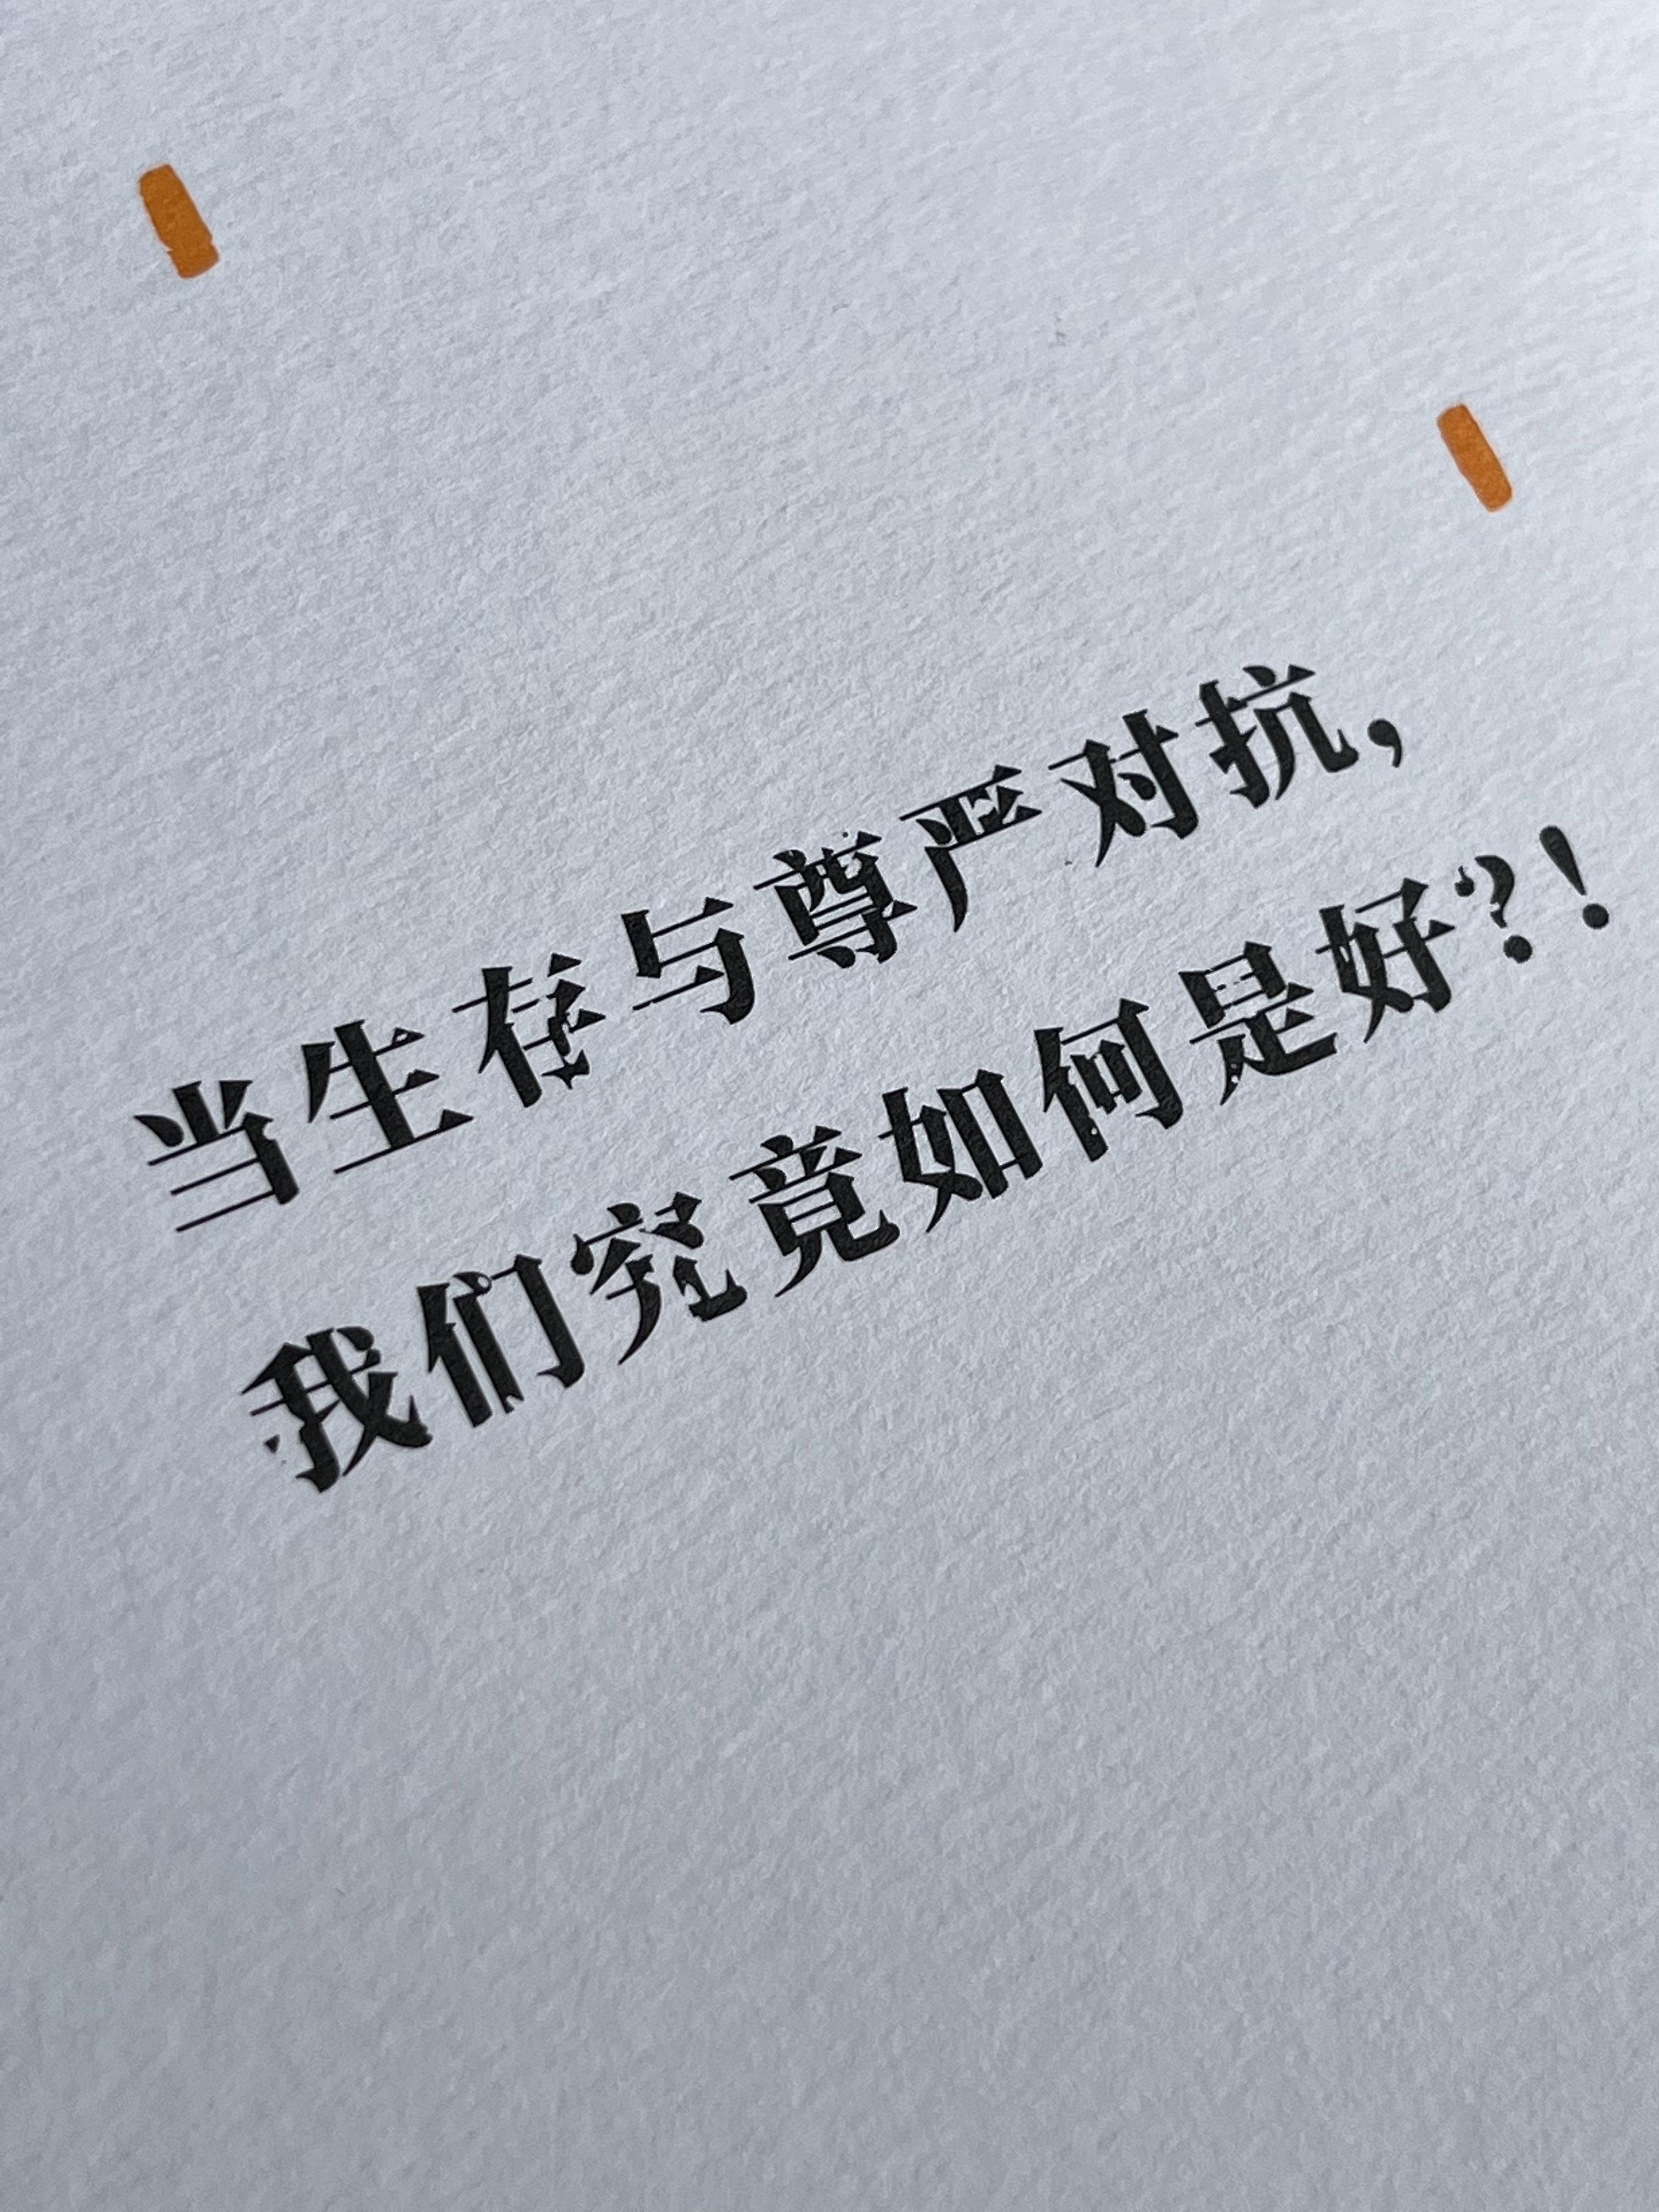 当生存与尊严对抗，
我们究竟如何是好？！